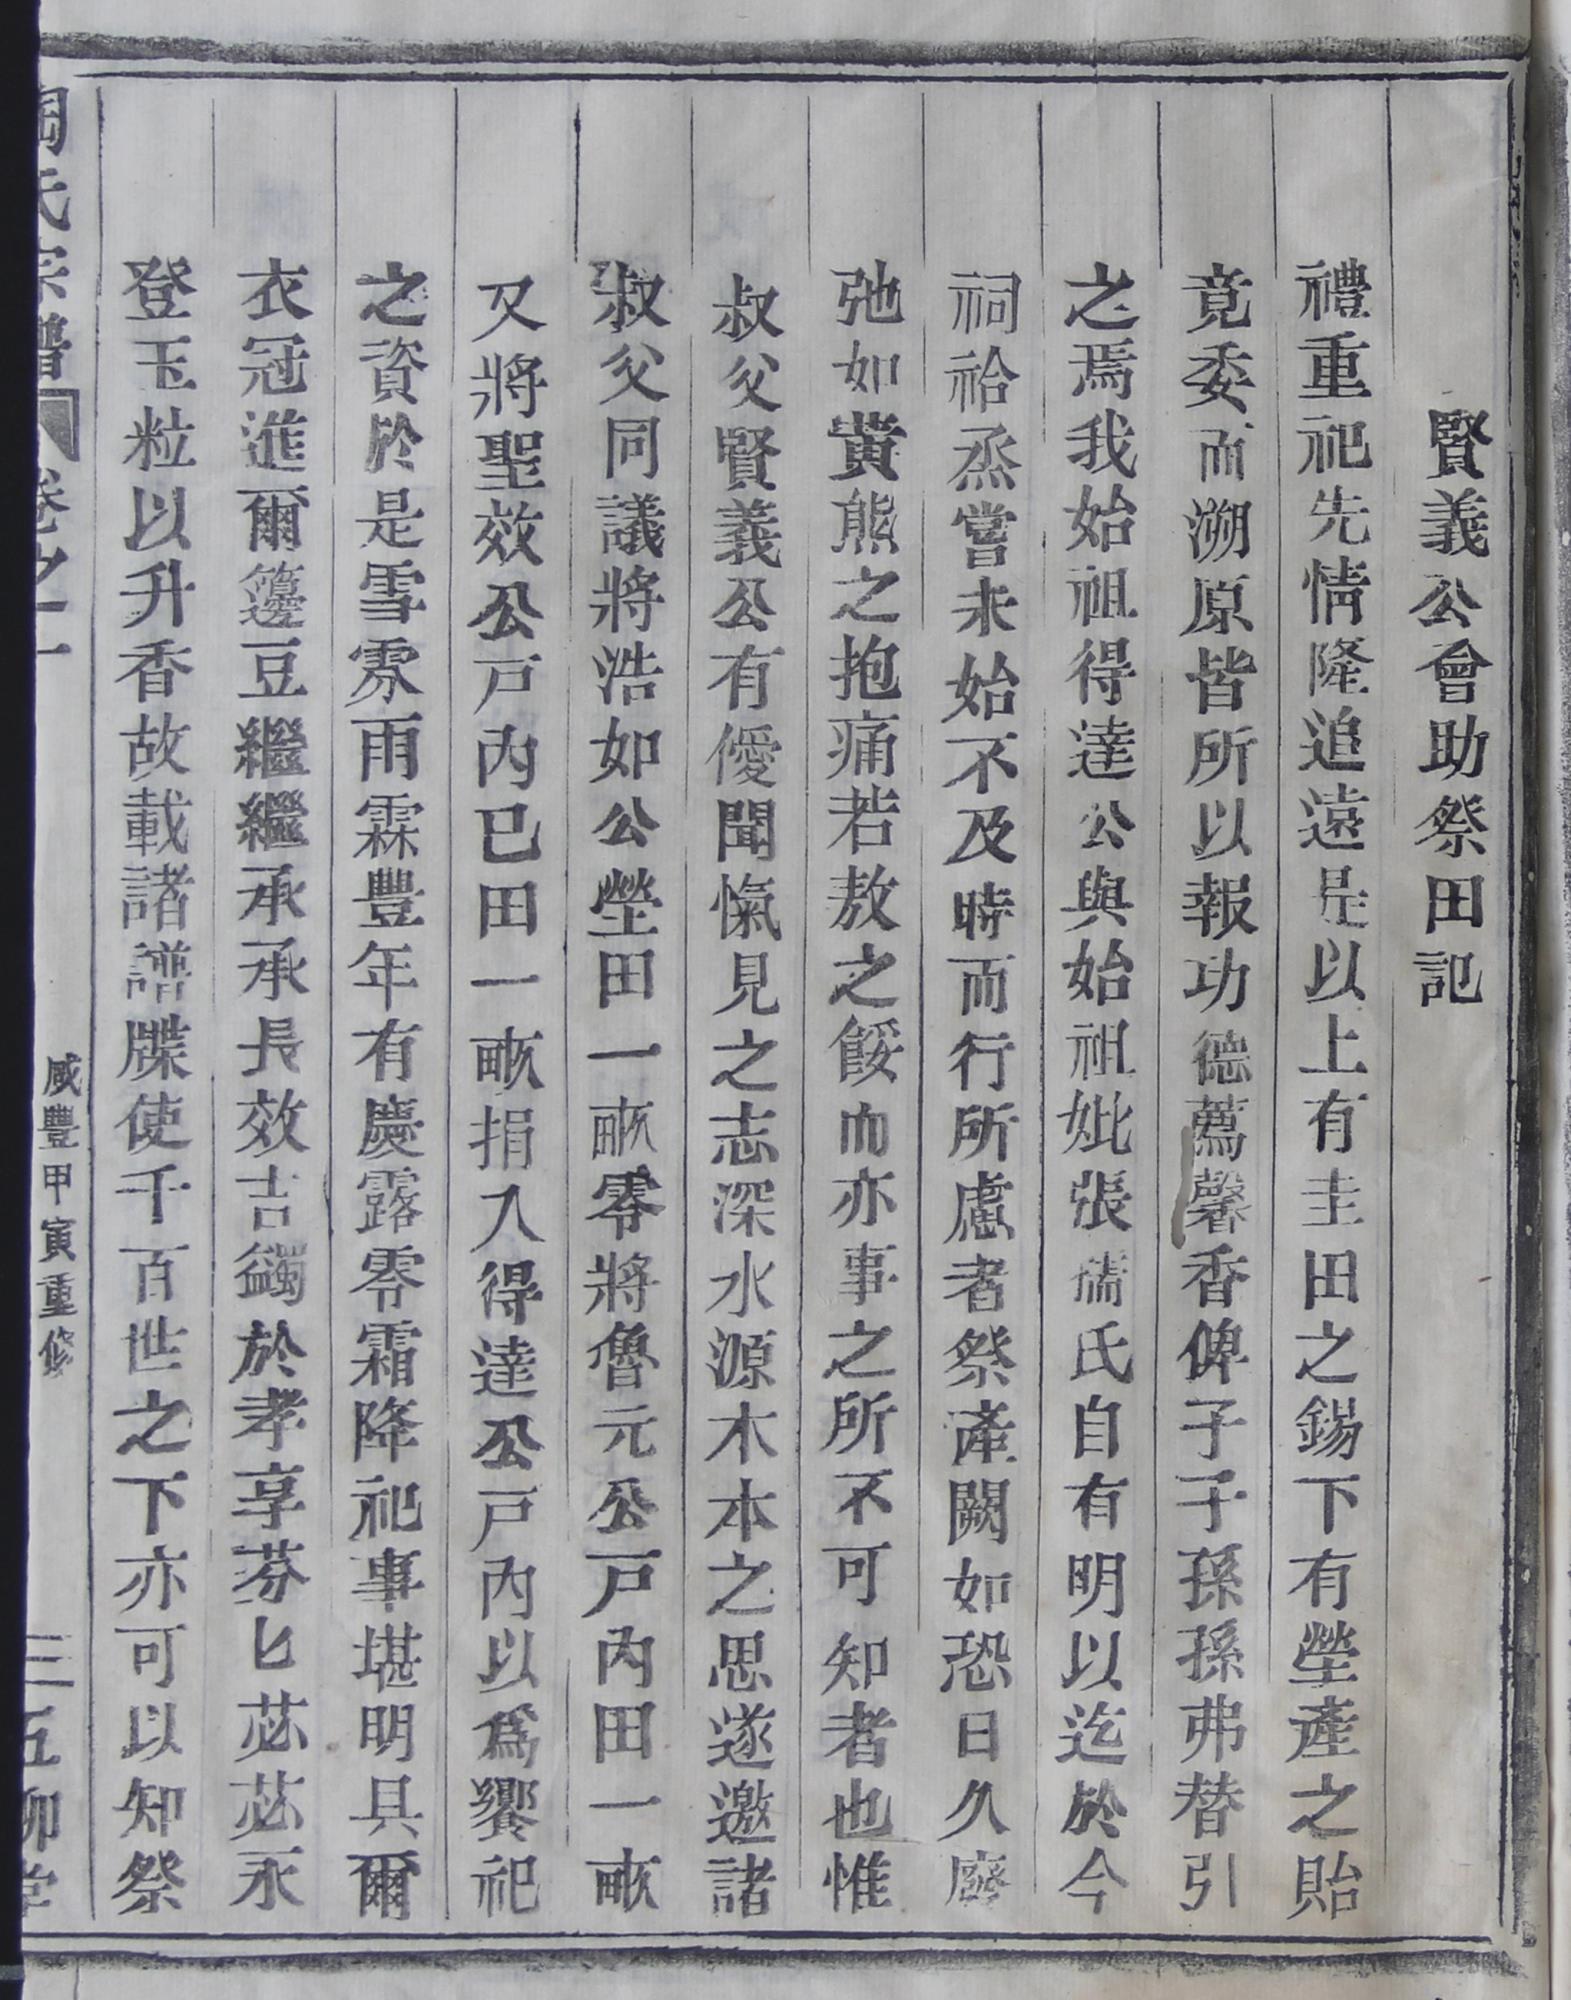 賢義公會助祭田記
禮重祀先情隆追遠是以上有圭田之錫下有塋產之貽
竟委而溯原皆所以報功德薦馨香俾子子孫孫弗替引
之焉我始祖得達公與始祖妣張孺氏自有明以迄於今
祠祫烝嘗未始不及時而行所慮者祭產闕如恐日久廢
弛如黄熊之抱痛若敖之餒而亦事之所不可知者也惟
叔父賢義公有僾聞愾見之志深水源木本之思遂邀諸
叔父同議將浩如公塋田一畝零將魯元公戸內田一畝
又將聖效公戸內已田一畝捐入得達公戸內以爲饗祀
之資於是雪雰雨霖豐年有慶露零霜降祀事堪明具爾
衣冠進爾籩豆繼繼承承長效吉蠲於孝享芬匕苾苾永
登玉粒以升香故載諸譜牒使千百世之下亦可以知祭
陶氏宗譜 卷之一 咸豐甲寅重修 三 五柳堂